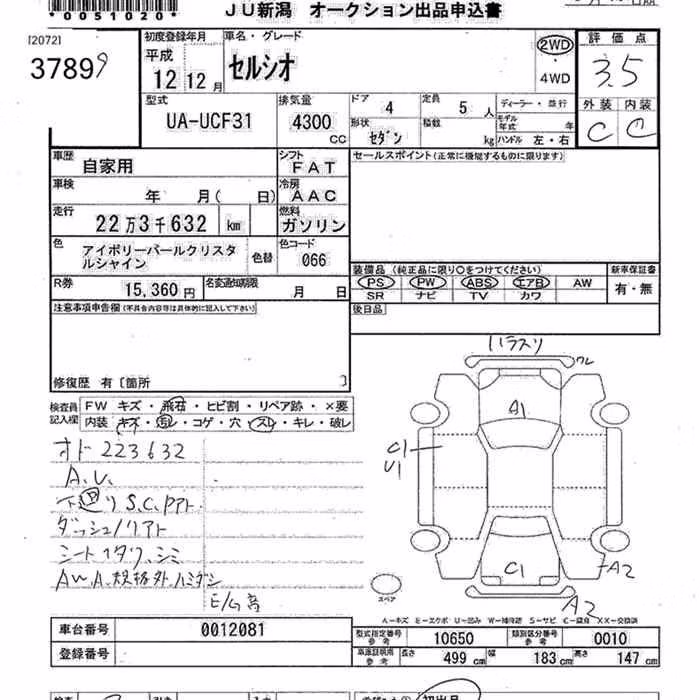 *0051020*
JU新潟 オークション出品申込書
[2072]
37899
初度登録年月 車名・グレード
平成
12 12月 セルシオ
2WD
4WD
評価点
3.5
外装 内装
C C
型式
UA-UCF31
排気量
4300 CC
ドア 4 定員 5 人
形状 セダン 積載 kg
ディーラー・並行
モデル年式 年
ハンドル 左・右
車歴 自家用
シフト FAT
車検 年 月( 日)
冷房 AAC
走行 22万3千632 km
燃料 ガソリン
色 アイボリーパールクリスタルシャイン
色替
色コード 066
R券 15,360円
名変通知期限 月 日
セールスポイント(正常に機能するものに限ります)
装備品 (純正品に限り○をつけてください)
新車保証書
PS PW ABS エアB AW
有・無
SR ナビ TV カワ
後日品
注意事項申告欄(不具合内容等は具体的に記入して下さい)
修復歴 有〔箇所 〕
検査員記入欄
FW キズ・飛石・ヒビ割・リペア跡・×要
内装 キズ・汚・コゲ・穴・スレ・キレ・破レ
オド 223632
A.U.
下廻り S.C.
シミ
AW.A.規格外ハミダシ
E/G高
ワレ
A1
C1
U1
C1
A2
A2
スペア
A－キズ E－エクボ U－凹み W－補修跡 S－サビ C－腐食 XX－交換済
車台番号 0012081
登録番号
型式指定番号 参考 10650
類別区分番号 参考 0010
車庫証明用 参考 長さ 499cm 幅 183cm 高さ 147cm